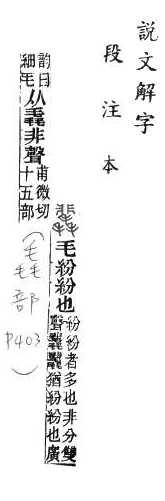 說文解字
段注本
毛紛紛也
紛紛者多也非分雙
聲猶紛紛也廣
韵曰
細毛
从毳非聲
甫微切
十五部
(毳部 P403)